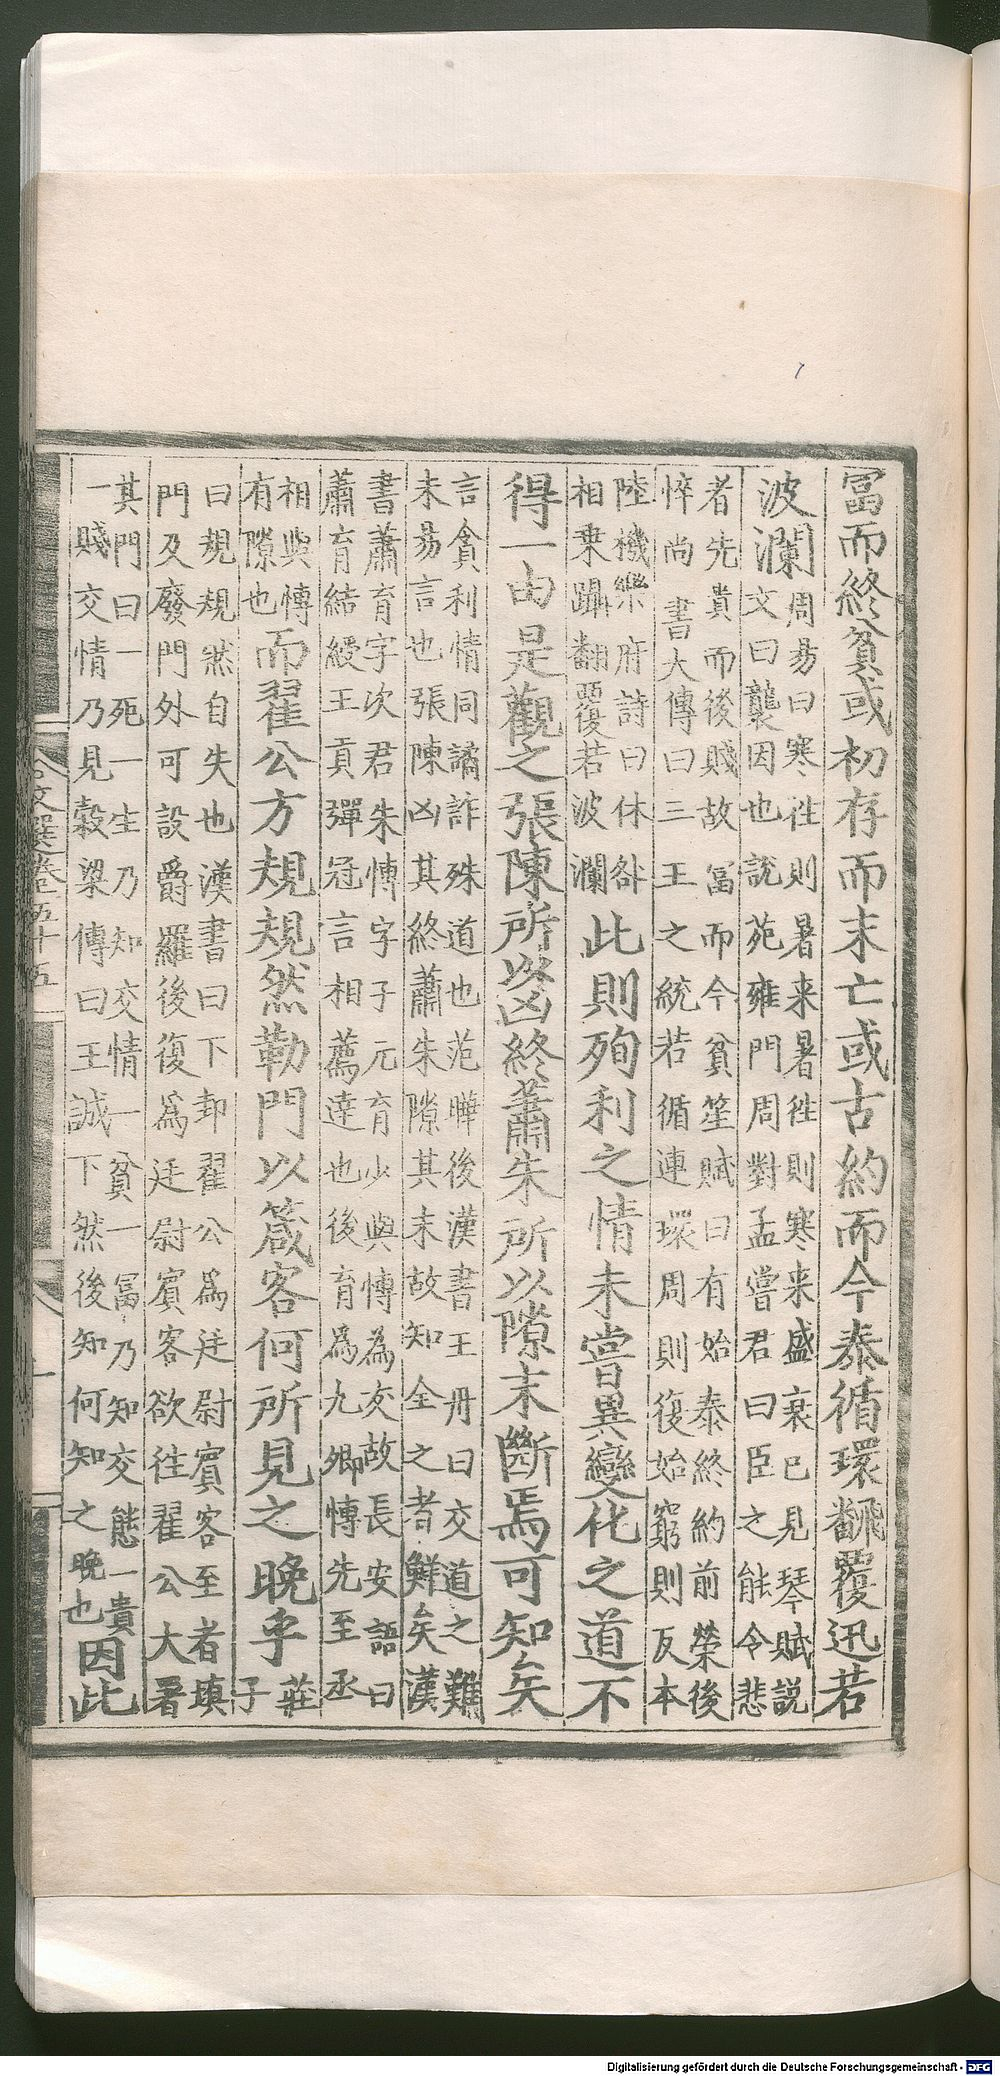 冨而終貧或初存而末亡或古約而今泰循環飜覆迅若
波瀾周易曰寒徃則暑来暑徃則寒来盛衰已見琴賦説
文曰襲因也說苑雍門周對孟嘗君曰臣之能令悲
者先貴而後賤故冨而今貧笙賦曰有始泰終約前榮後
悴尚書大傳曰三王之統若循連環周則復始窮則反本
陸機樂府詩曰休咎
相乗躡翻覆若波瀾此則殉利之情未甞異變化之道不
得一由是觀之張陳所以凶終蕭朱所以隙末斷焉可知矣
言貪利情同譎詐殊道也范曄後漢書王丹曰交道之難
未易言也張陳凶其終蕭朱隙其末故知全之者鮮矣漢
書蕭育字次君朱慱字子元育少與慱為友故長安語曰
蕭育結綬王貢彈冠言相薦逹也後育為九卿慱先至丞
相與慱
有隙也而翟公方規規然勒門以箴客何所見之晚乎莊
子
曰規規然自失也漢書曰下邽翟公爲廷尉賓客至者填
門及廢門外可設爵羅後復爲廷尉賓客欲往翟公大署
其門曰一死一生乃知交情一貧一冨乃知交態一貴
一賤交情乃見穀梁傳曰王誠下然後知何知之晚也因此
文選卷五十五
Digitalisierung gefördert durch die Deutsche Forschungsgemeinschaft - DFG